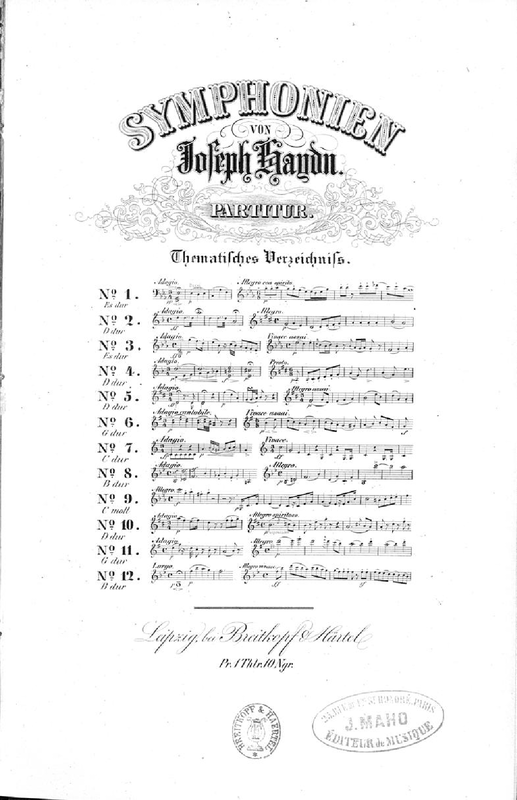 SYMPHONIEN
VON
Joseph Haydn.
PARTITUR.
Thematisches Verzeichniss.
Nº 1. Adagio. Allegro con spirito.
Es dur
Nº 2. Adagio. Allegro.
D dur
Nº 3. Adagio. Vivace assai
Es dur
Nº 4. Adagio. Presto.
D dur
Nº 5. Adagio. Allegro assai
D dur
Nº 6. Adagio cantabile. Vivace assai.
G dur
Nº 7. Adagio. Vivace.
C dur
Nº 8. Adagio Allegro.
B dur
Nº 9. Allegro.
C moll
Nº 10. Adagio. Allegro spiritoso.
D dur
Nº 11. Adagio. Allegro.
G dur
Nº 12. Largo. Allegro vivace.
B dur
Leipzig, bei Breitkopf & Härtel
Pr. 1 Thlr. 10 Ngr.
BREITKOPF & HAERTEL
25, RUE DU FG ST HONORÉ, PARIS
J. MAHO
ÉDITEUR de MUSIQUE